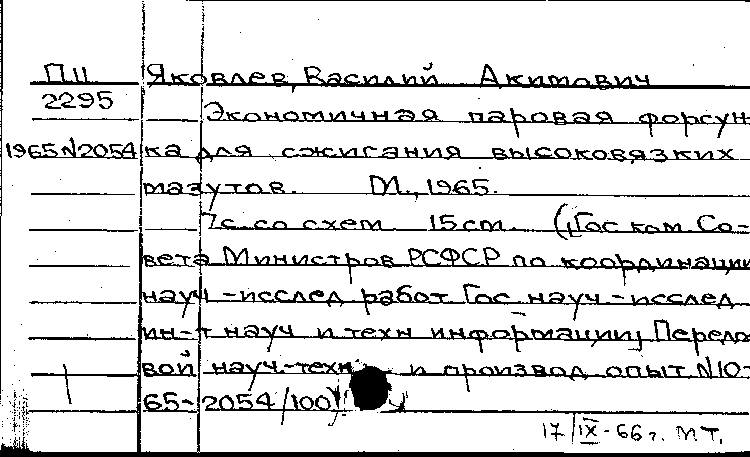 П11 Яковлев, Василий Акимович
2295 Экономичная паровая форсун-
1965 N2054 ка для сжигания высоковязких
мазутов. М., 1965.
7с. со схем. 15см. (Гос ком. Со-
вета Министров РСФСР по координации
науч-исслед работ Гос науч-исслед
ин-т науч и техн информации) Передо
вой науч-техн и производ опыт. N10-
65-2054/100)
17/IX-66 г. М.Т.